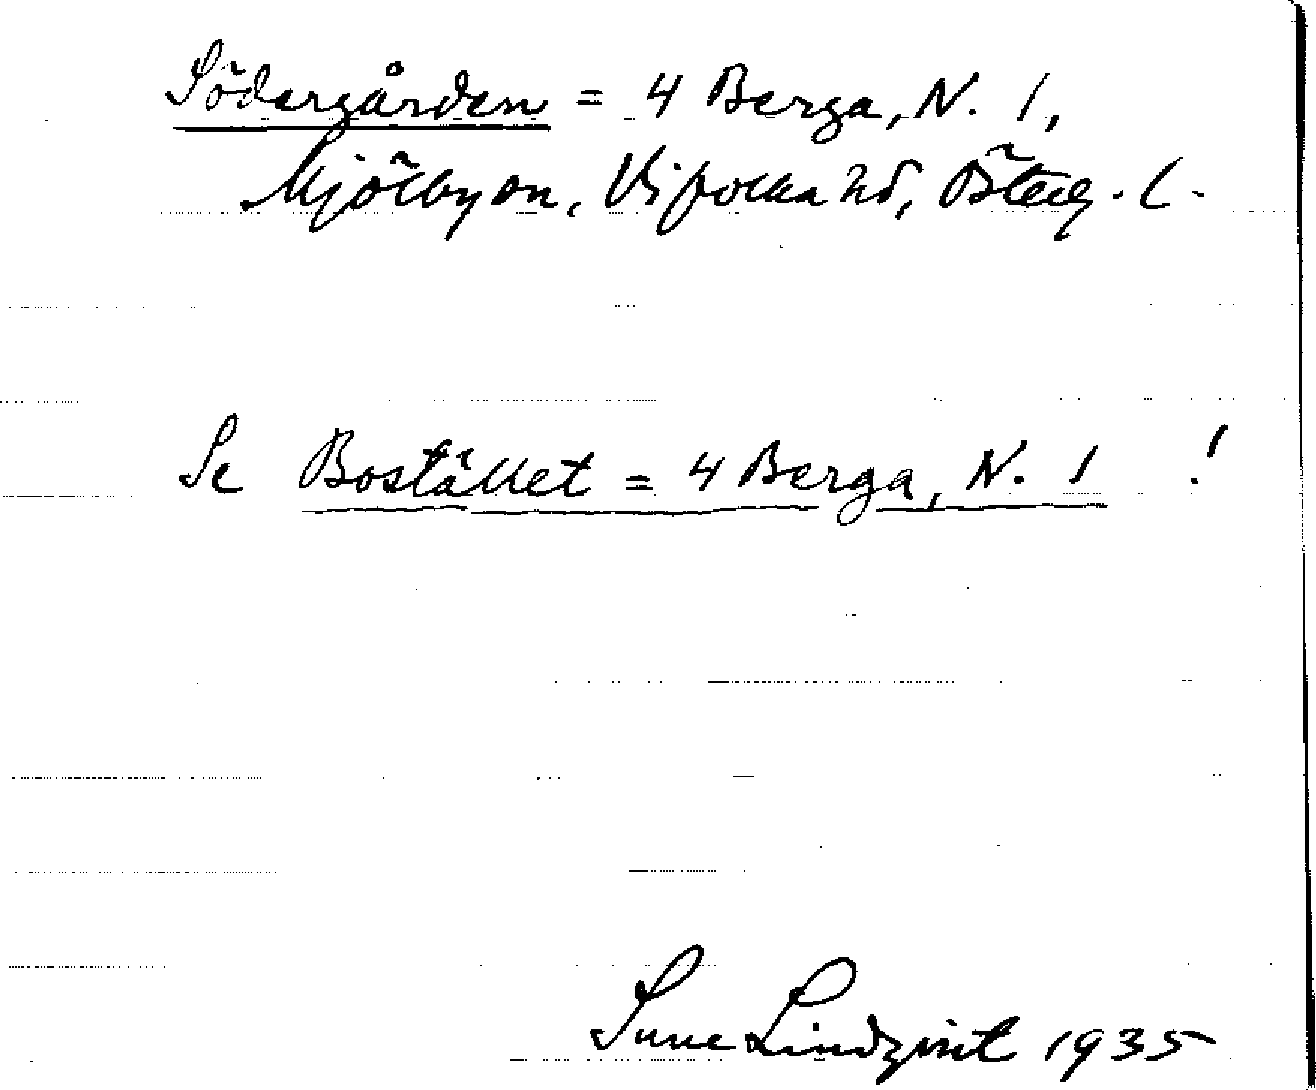 Södergården = 4 Berga, N. 1,
Mjölby sn, Vifolka hd, Österg. l.
Se Bostället = 4 Berga, N. 1 !
Sune Lindqvist 1935